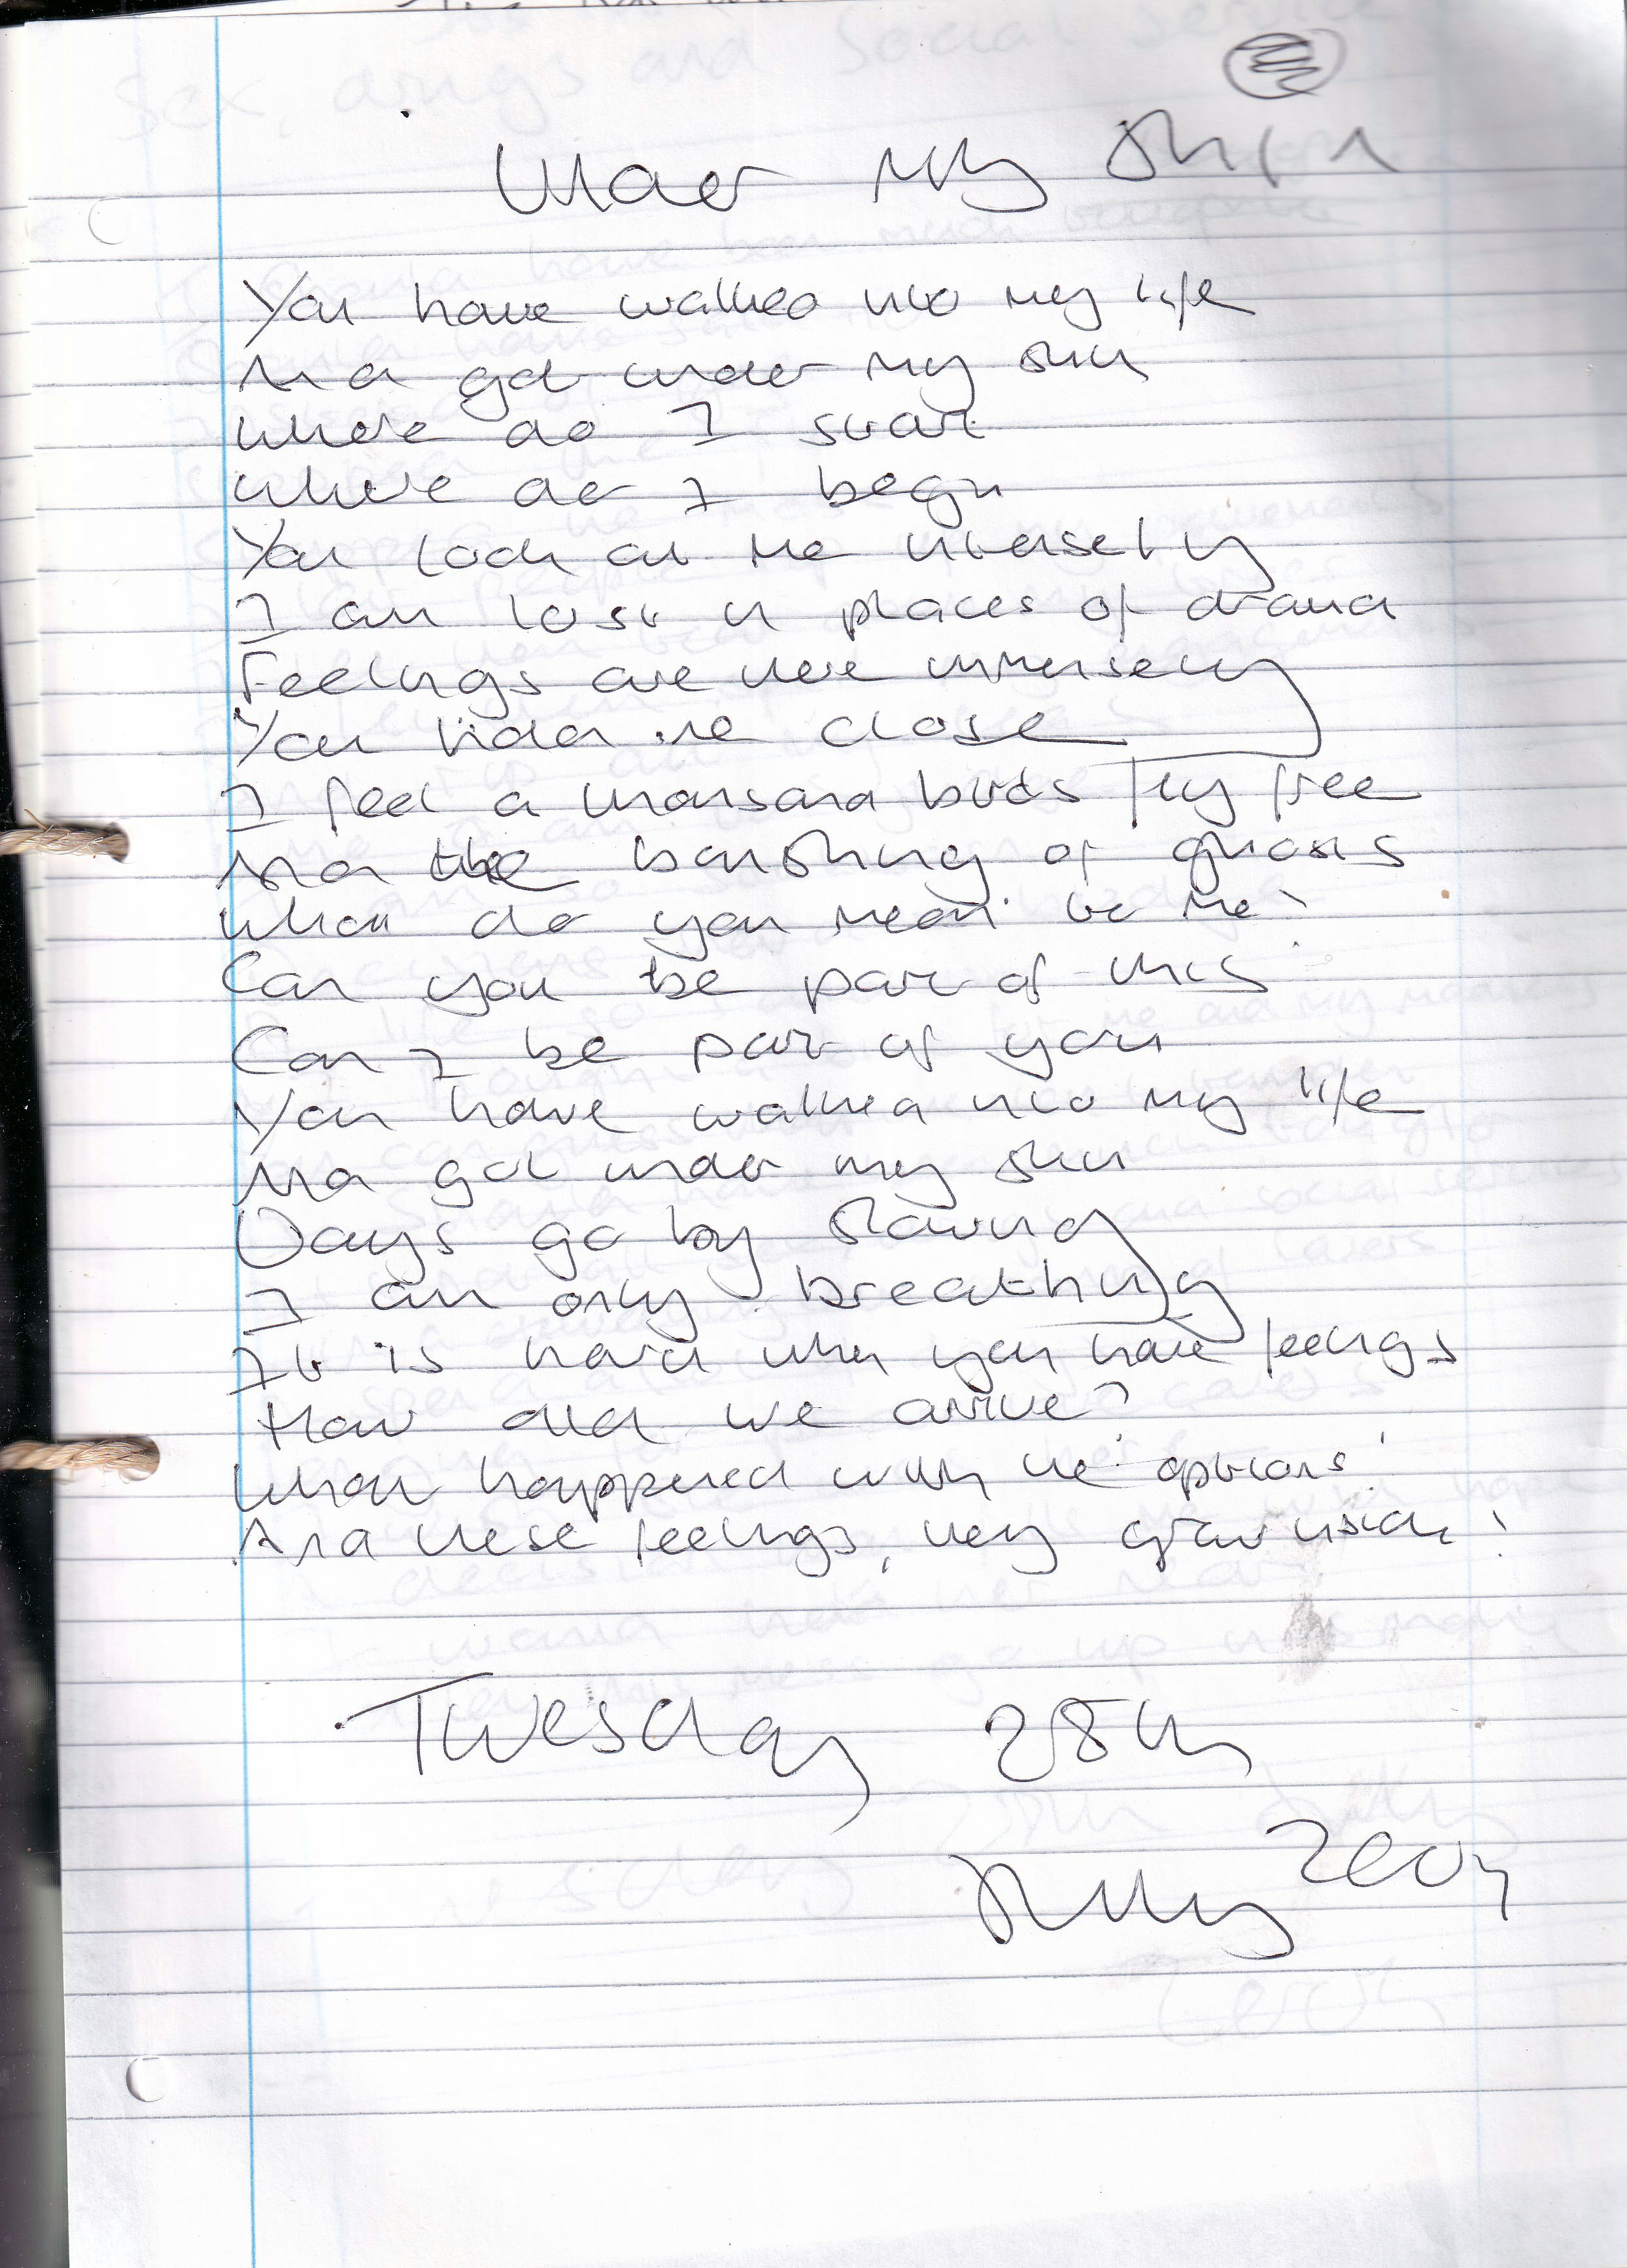 Under My Skin
You have walked into my life
And got under my skin
Where do I start
Where do I begin
You look at me intensely
I am lost in places of drama
Feelings are here immensely
You hold me close
I feel a thousand birds fly free
And the banishing of ghosts
What do you mean to me?
Can you be part of this
Can I be part of you
You have walked into my life
And got under my skin
Days go by slowly
I am only breathing
It is hard when you have feelings
How did we arrive?
What happened with the options?
And these feelings, they grow inside!
Tuesday 28th
July 2004